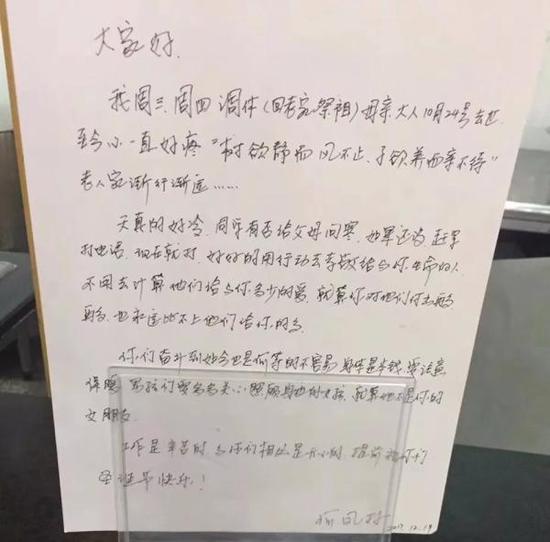 大家好
我周三、周四调休(回老家祭祖)母亲大人10月24号去世
至今心一直好疼"树欲静而风不止、子欲养而亲不待"
老人家渐行渐远……
天真的好冷、同学有否给父母问寒、如果还没、赶紧
打电话、现在就打、好好的用行动去孝敬给与你生命的人
不用去计算他们给与你多少的爱、就算你对他们付出再多
再多、也永远比不上他们给你的多
你们奋斗到如今也是何等的不容易、身体是本钱、要注意
保暖、男孩们要多多关心照顾身边的女孩、就算她不是你的
女朋友
工作是辛苦的、与你们相处是开心的、提前祝你们
圣诞节快乐!
2017.12.19